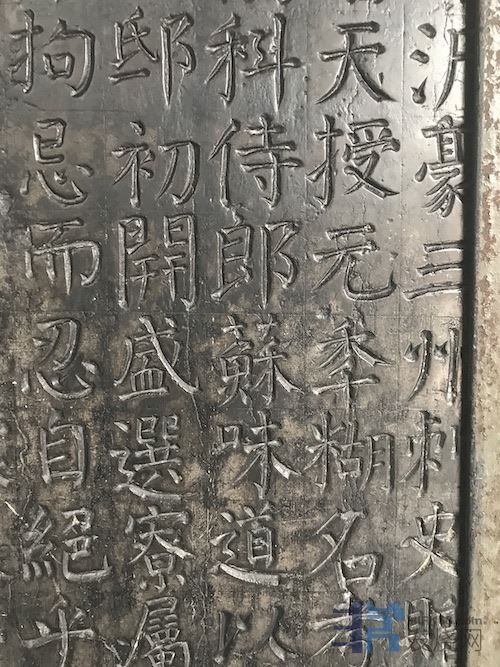 沂豪三州刺史
天授元秊糊名考
科侍郎蘇味道以
邸初開盛選寮屬
拘忌而忍自絕乎